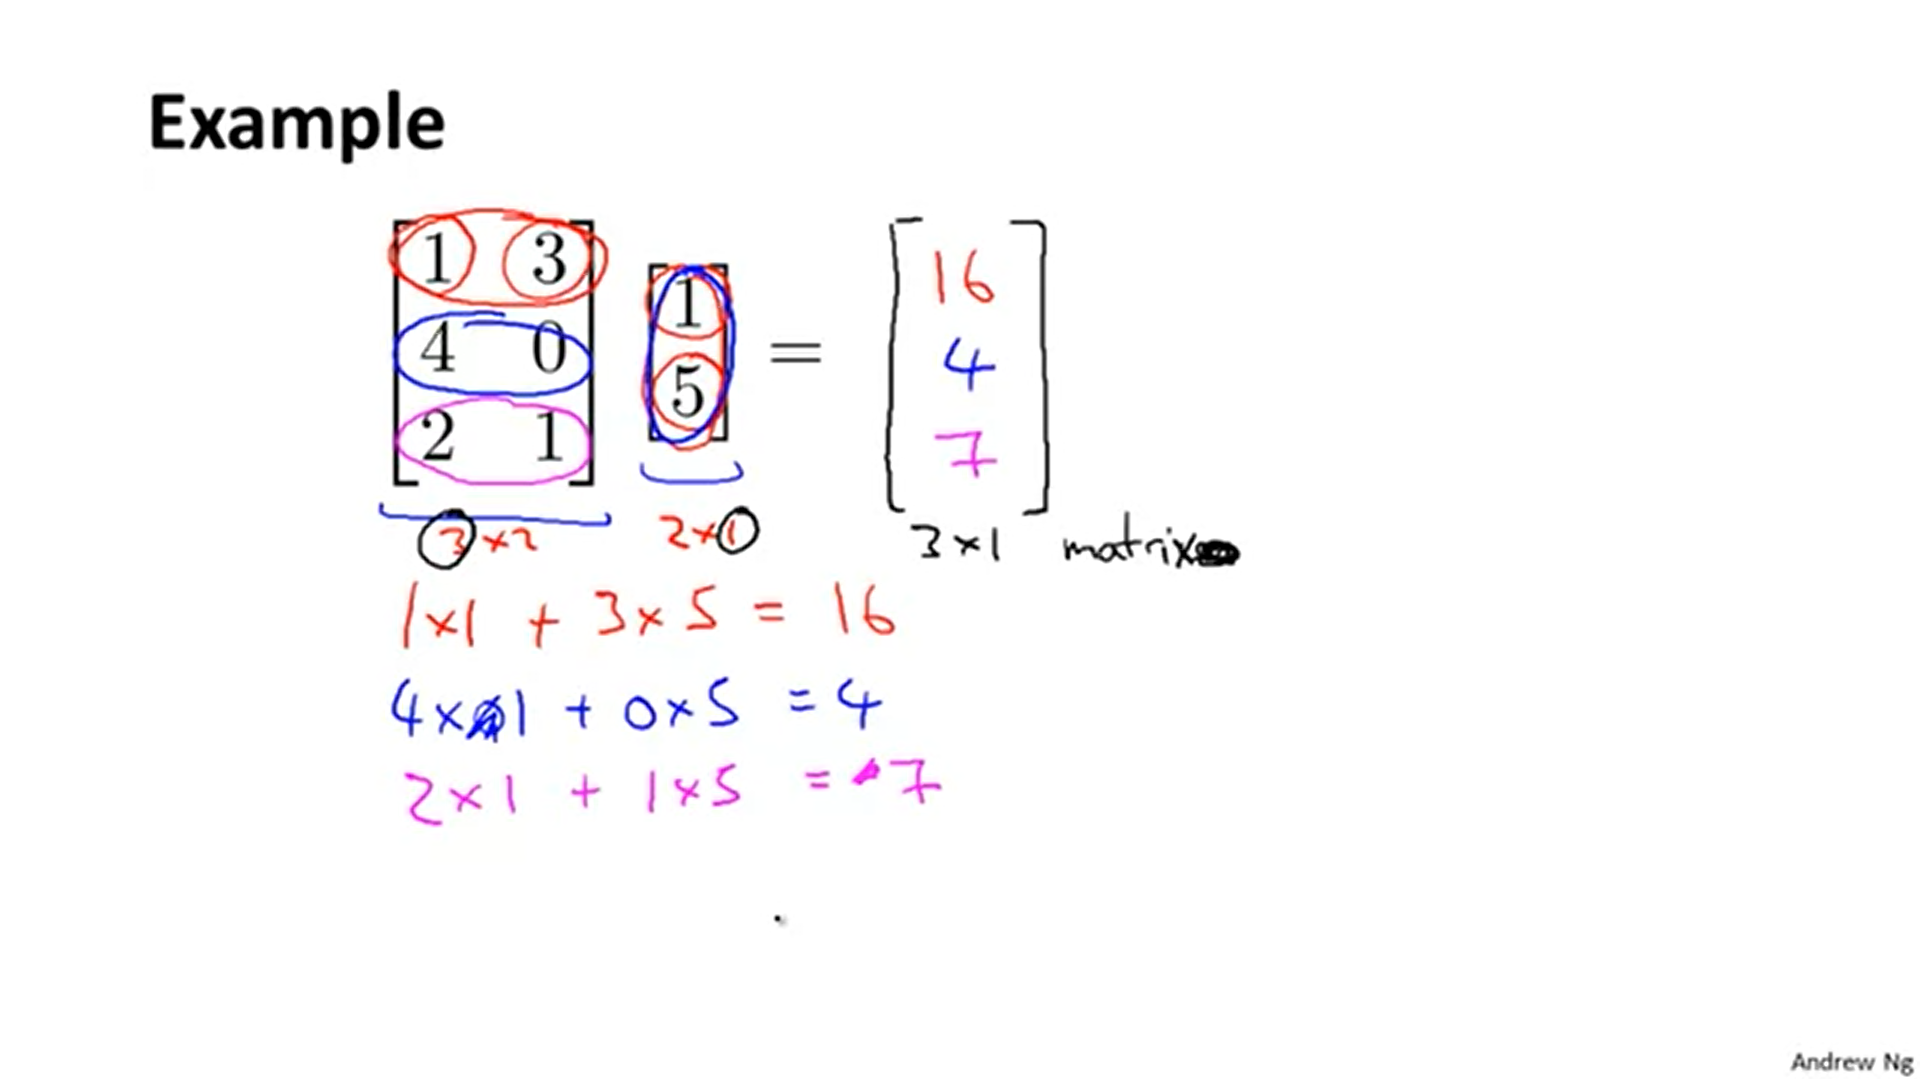 Example
1 3
4 0
2 1
1
5
=
16
4
7
3 x 2
2 x 1
3 x 1 matrix
1 x 1 + 3 x 5 = 16
4 x 1 + 0 x 5 = 4
2 x 1 + 1 x 5 = 7
Andrew Ng